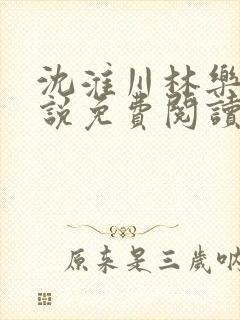 沈淮川林樂
說免費閱讀
原來是三歲吶